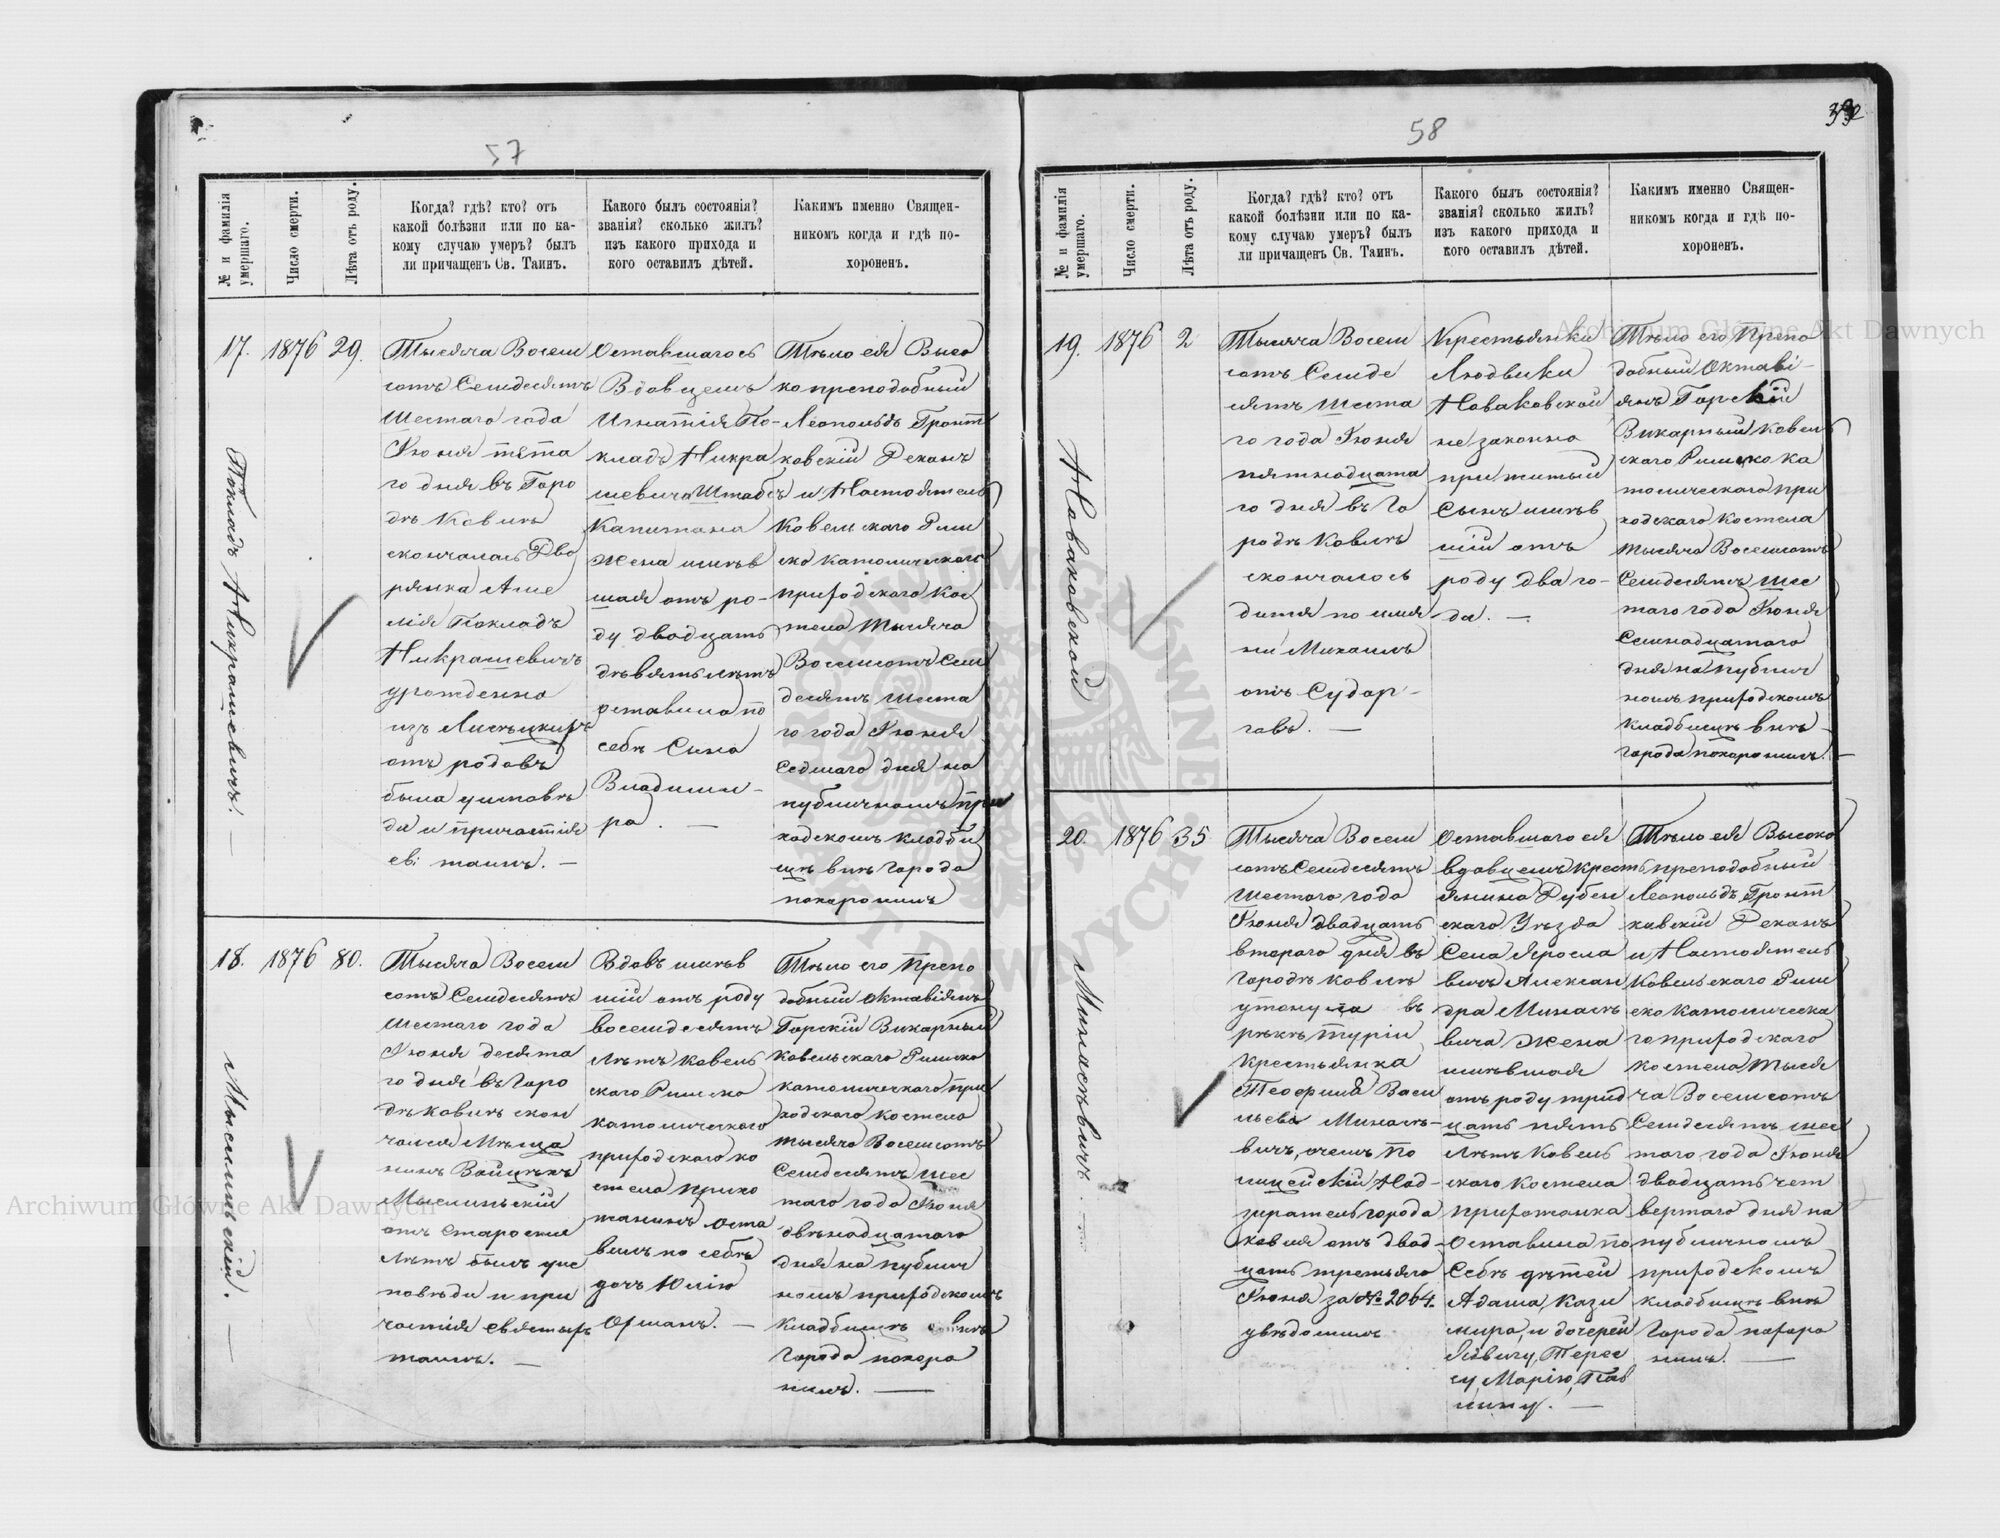 57
№ и фамилія умершаго.
Число смерти.
Лѣта отъ роду.
Когда? гдѣ? кто? отъ
какой болѣзни или по ка-
кому случаю умеръ? былъ
ли причащенъ Св. Таинъ.
Какого былъ состоянія?
званія? сколько жилъ?
изъ какого прихода и
кого оставилъ дѣтей.
Какимъ именно Священ-
никомъ когда и гдѣ по-
хороненъ.
17.
Покладъ Никрашевичъ. —
1876
29.
Тысяча Восем
сотъ Семдесятъ
Шестаго года
Іюня пята
го дня въ Горо
дѣ Ковлѣ
скончалась Дво
рянка Аме
лія Покладъ
Никрашевичъ
урожденна
изъ
отъ родовъ
была исповѣ
ди и причастія
св: таинъ. —
Оставшагося
Вдовцемъ
Игнатія По-
кладъ Никра
шевича Штабсъ
Капитана
жена имѣв
шая отъ ро-
ду двадцать
девять лѣтъ
оставила по
себѣ Сына
Владими-
ра. —
Тѣло ея Высо
копреподобный
Леопольдъ Гронт
ковскій Деканъ
и Настоятель
Ковельскаго Рим
ско католическаго
приходскаго Кос
тела Тысяча
Восемсотъ Сем
десятъ Шеста
го года Іюня
Седмаго дня на
публичномъ при
ходскомъ кладби
щѣ внѣ Города
похоронилъ
18.
Мыслинскій. —
1876
80.
Тысяча Восем
сотъ Семдесятъ
Шестаго года
Іюня десята
го дня въ Горо
дѣ Ковлѣ скон
чался Мѣща
нинъ Войцѣхъ
Мыслинскій
отъ старости
лѣтъ былъ ис
повѣди и при
частія святыхъ
таинъ. —
Вдовъ имѣв
шій отъ роду
восемдесятъ
лѣтъ Ковель
скаго Римско
католическаго
приходскаго ко
стела прихо
жанинъ оста
вилъ по себѣ
дочь Юлію
—
Тѣло его Препо
добный Октавіянъ
Горскій Викарный
Ковельскаго Римско
католическаго при
ходскаго костела
тысяча Восемсотъ
Семдесятъ Шес
таго года Іюня
двѣнадцатаго
дня на публич
номъ приходскомъ
Кладбищѣ внѣ
Города похоро
нилъ. —
58
№ и фамилія умершаго.
Число смерти.
Лѣта отъ роду.
Когда? гдѣ? кто? отъ
какой болѣзни или по ка-
кому случаю умеръ? былъ
ли причащенъ Св. Таинъ.
Какого былъ состоянія?
званія? сколько жилъ?
изъ какого прихода и
кого оставилъ дѣтей.
Какимъ именно Священ-
никомъ когда и гдѣ по-
хороненъ.
19.
Новаковской
1876
2
Тысяча Восем
сотъ Семде
сятъ Шеста
го года Іюня
пятнадцата
го дня въ Го
родѣ Ковлѣ
скончалось
дитя по име
ни Михаилъ
отъ Судор-
говъ. —
Крестьянки
Людвики
Новаковской
не законно
прижитый
Сынъ имѣв
шій отъ
роду два го-
да. —
Тѣло его Препо
добный Октаві-
янъ Горскій
Викарный Ковель
скаго Римско ка
толическаго при
ходскаго Костела
тысяча Восемсотъ
Семдесятъ Шес
таго года Іюня
Семнадцатаго
дня на публич
номъ приходскомъ
кладбищѣ внѣ-
города похоронилъ. —
20.
Минасѣвичъ. —
1876
35
Тысяча Восем
сотъ Семдесятъ
Шестаго года
Іюня двадцать
втораго дня въ
Городѣ Ковлѣ
утонула въ
рѣкѣ Туріи
Крестьянка
Теофиля Васи
льева Минасѣ-
вичъ, о чемъ По
лицейскій Над-
зиратель города
Ковля отъ двад-
цать третьяго
Іюня за № 2064.
увѣдомилъ
Оставшаго ея
вдовцемъ Кресть
янина Дубен
скаго Уѣзда
Села Яросла
вичъ Алексан
дра Минасѣ
вича Жена
имѣвшая
отъ роду трид
цать пять
лѣтъ Ковель
скаго костела
прихожанка
Оставила по
Себѣ дѣтей
Адама, Кази
мира, и дочерей
Ядвигу, Терес
су, Марію, Пав
лину. —
Тѣло ея Высоко
преподобный
Леопольдъ Гронт
ковскій Деканъ
и Настоятель
Ковельскаго Рим
ско католическа
го приходскаго
костела Тыся
ча Восемсотъ
Семдесятъ Шес
таго года Іюня
двадцать чет
вертаго дня на
публичномъ
приходскомъ
кладбищѣ внѣ
Города похоро
нилъ. —
Archiwum Główne Akt Dawnych
Archiwum Główne Akt Dawnych
ARCHIWUM GŁÓWNE AKT DAWNYCH